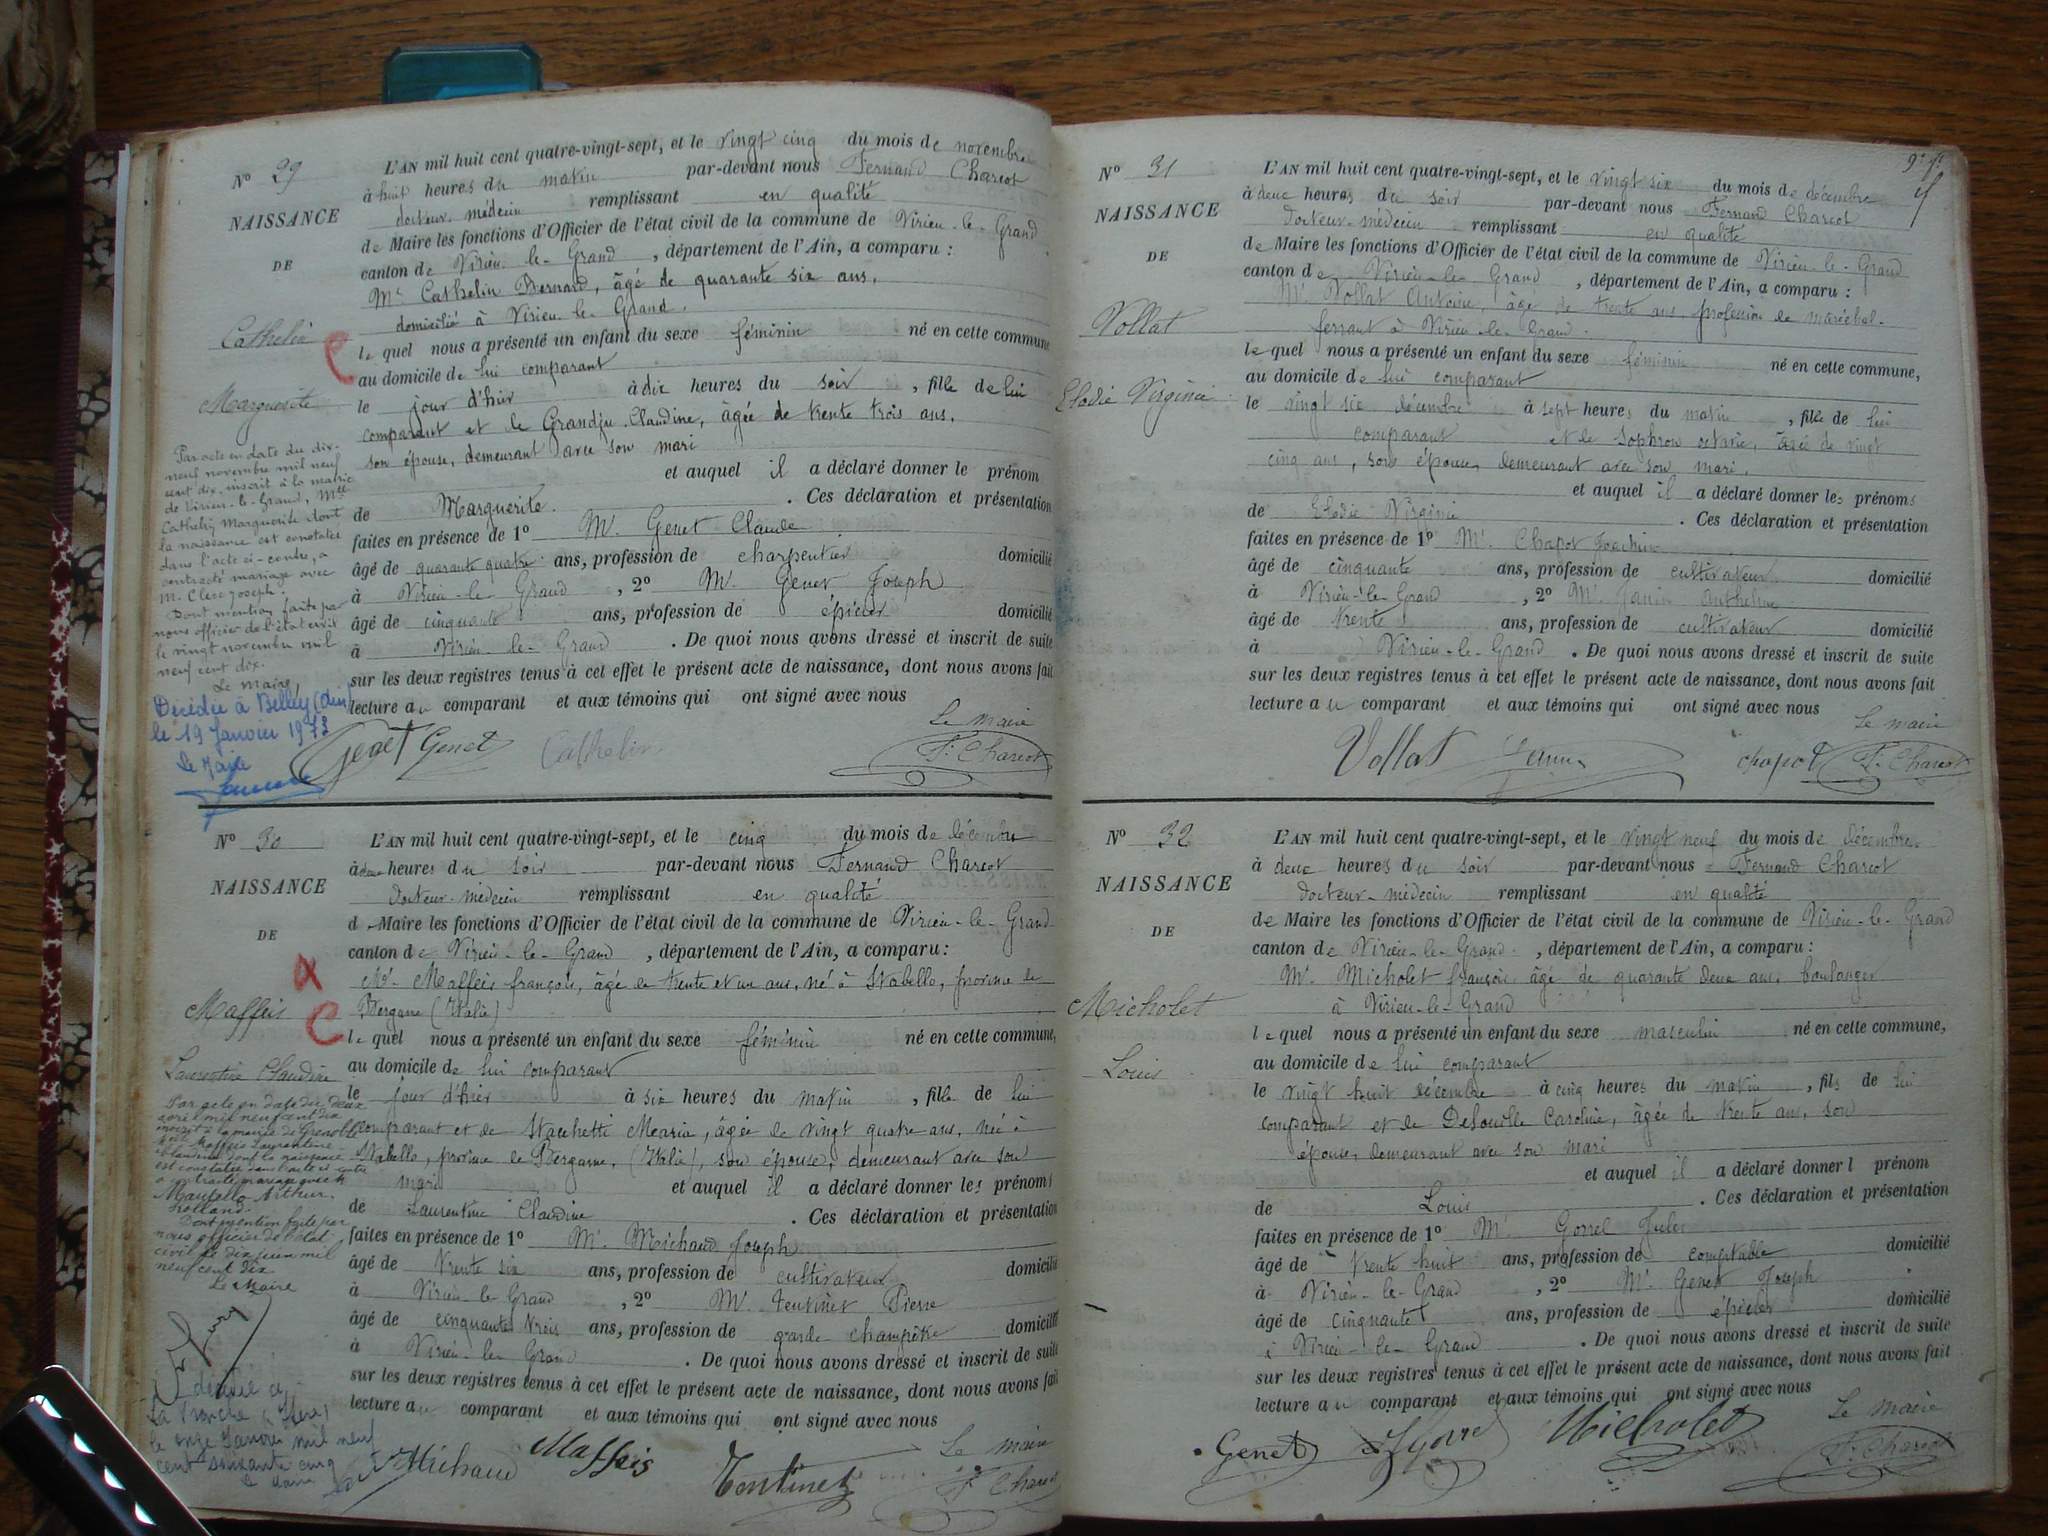 N° 29
NAISSANCE
DE
Cathelin
Marguerite
L'AN mil huit cent quatre-vingt-sept, et le vingt cinq du mois de novembre
à huit heures du matin par-devant nous Fernand Charcot
docteur-médecin remplissant en qualité
de Maire les fonctions d'Officier de l'état civil de la commune de Virieu-le-Grand
canton de Virieu-le-Grand, département de l'Ain, a comparu :
Mr Cathelin Bernard, âgé de quarante six ans,
domicilié à Virieu-le-Grand.
lequel nous a présenté un enfant du sexe féminin né en cette commune
au domicile de lui comparant
le jour d'hier à dix heures du soir, fille de lui
comparant et de Grandju Claudine, âgée de trente trois ans,
son épouse, demeurant avec son mari
et auquel il a déclaré donner le prénom
de Marguerite. Ces déclaration et présentation
faites en présence de 1° Mr. Genet Claude
âgé de quarante quatre ans, profession de charpentier domicilié
à Virieu-le-Grand, 2° Mr. Genet Joseph
âgé de cinquante ans, profession de épicier domicilié
à Virieu-le-Grand. De quoi nous avons dressé et inscrit de suite
sur les deux registres tenus à cet effet le présent acte de naissance, dont nous avons fait
lecture au comparant et aux témoins qui ont signé avec nous
Le maire
Genet Genet Cathelin F. Charcot
Par acte en date du dix-
neuf novembre mil neuf
cent dix, inscrit à la mairie
de Virieu-le-Grand, Mlle
Cathelin Marguerite dont
la naissance est constatée
dans l'acte ci-contre, a
contracté mariage avec
M. Clerc Joseph.
Dont mention faite par
nous officier de l'état civil
le vingt novembre mil
neuf cent dix.
Le Maire,
Décédée à Belley (Ain)
le 19 Janvier 1973
Le Maire
N° 30
NAISSANCE
DE
Maffeis
Laurentine Claudine
L'AN mil huit cent quatre-vingt-sept, et le cinq du mois de décembre
à deux heures du soir par-devant nous Fernand Charcot
docteur-médecin remplissant en qualité
de Maire les fonctions d'Officier de l'état civil de la commune de Virieu-le-Grand
canton de Virieu-le-Grand, département de l'Ain, a comparu :
Mr. Maffeis françois, âgé de trente et un ans, né à Stabello, province de
Bergame (Italie)
lequel nous a présenté un enfant du sexe féminin né en cette commune,
au domicile de lui comparant
le jour d'hier à six heures du matin, fille de lui
comparant et de Stacchetti Maria, âgée de vingt quatre ans, née à
Stabello, province de Bergame, (Italie), son épouse, demeurant avec son
mari et auquel il a déclaré donner les prénoms
de Laurentine Claudine. Ces déclaration et présentation
faites en présence de 1° Mr. Michaud Joseph
âgé de trente six ans, profession de cultivateur domicilié
à Virieu-le-Grand, 2° Mr. Tentinet Pierre
âgé de cinquante trois ans, profession de garde champêtre domicilié
à Virieu-le-Grand. De quoi nous avons dressé et inscrit de suite
sur les deux registres tenus à cet effet le présent acte de naissance, dont nous avons fait
lecture au comparant et aux témoins qui ont signé avec nous
Le maire
Michaud Maffeis Tentinet F. Charcot
Par acte en date du deux
avril mil neuf cent dix
inscrit à la mairie de Grenoble
Maffeis Laurentine
Claudine dont la naissance
est constatée dans l'acte ci-contre
a contracté mariage avec
Arthur
Rolland.
Dont mention faite par
nous officier de l'état
civil le dix juin mil
neuf cent dix
Le Maire
décédée à
La Tronche (Isère)
le onze Janvier mil neuf
cent soixante cinq
Le Maire
9e f.
N° 31
NAISSANCE
DE
Vollat
Elodie Virginie
L'AN mil huit cent quatre-vingt-sept, et le vingt six du mois de décembre
à deux heures du soir par-devant nous Fernand Charcot
docteur-médecin remplissant en qualité
de Maire les fonctions d'Officier de l'état civil de la commune de Virieu-le-Grand
canton de Virieu-le-Grand, département de l'Ain, a comparu :
Mr. Vollat Antoine, âgé de trente ans profession de maréchal-
ferrant à Virieu-le-Grand.
lequel nous a présenté un enfant du sexe féminin né en cette commune,
au domicile de lui comparant
le vingt six décembre à sept heures du matin, fille de lui
comparant et de Sophron octavie, âgée de vingt
cinq ans, son épouse, demeurant avec son mari.
et auquel il a déclaré donner les prénoms
de Elodie Virginie. Ces déclaration et présentation
faites en présence de 1° Mr. Chapot Joachim
âgé de cinquante ans, profession de cultivateur domicilié
à Virieu-le-Grand, 2° Mr. Janin Anthelme
âgé de trente ans, profession de cultivateur domicilié
à Virieu-le-Grand. De quoi nous avons dressé et inscrit de suite
sur les deux registres tenus à cet effet le présent acte de naissance, dont nous avons fait
lecture au comparant et aux témoins qui ont signé avec nous
Le maire
Vollat Janin chapot F. Charcot
N° 32
NAISSANCE
DE
Micholet
Louis
L'AN mil huit cent quatre-vingt-sept, et le vingt neuf du mois de décembre
à deux heures du soir par-devant nous Fernand Charcot
docteur-médecin remplissant en qualité
de Maire les fonctions d'Officier de l'état civil de la commune de Virieu-le-Grand
canton de Virieu-le-Grand, département de l'Ain, a comparu :
Mr. Micholet françois âgé de quarante deux ans, boulanger
à Virieu-le-Grand
lequel nous a présenté un enfant du sexe masculin né en cette commune,
au domicile de lui comparant
le vingt huit décembre à cinq heures du matin, fils de lui
comparant et de Caroline, âgée de trente ans, son
épouse, demeurant avec son mari
et auquel il a déclaré donner l prénom
de Louis. Ces déclaration et présentation
faites en présence de 1° Mr. Gorrel Jules
âgé de trente huit ans, profession de comptable domicilié
à Virieu-le-Grand, 2° Mr. Genet Joseph
âgé de cinquante ans, profession de épicier domicilié
à Virieu-le-Grand. De quoi nous avons dressé et inscrit de suite
sur les deux registres tenus à cet effet le présent acte de naissance, dont nous avons fait
lecture au comparant et aux témoins qui ont signé avec nous
Le maire
Genet Micholet F. Charcot